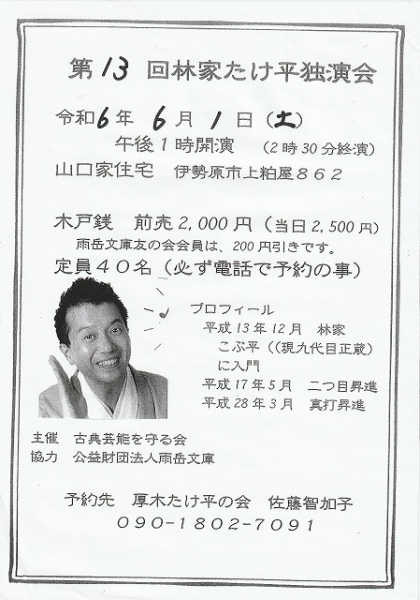 第13回林家たけ平独演会
令和6年 6月 1日(土)
午後1時開演 (2時30分終演)
山口家住宅 伊勢原市上粕屋862
木戸銭 前売2,000円(当日2,500円)
雨岳文庫友の会会員は、200円引きです。
定員40名(必ず電話で予約の事)
プロフィール
平成13年12月 林家
こぶ平((現九代目正蔵)
に入門
平成17年5月 二つ目昇進
平成28年3月 真打昇進
主催 古典芸能を守る会
協力 公益財団法人雨岳文庫
予約先 厚木たけ平の会 佐藤智加子
090-1802-7091